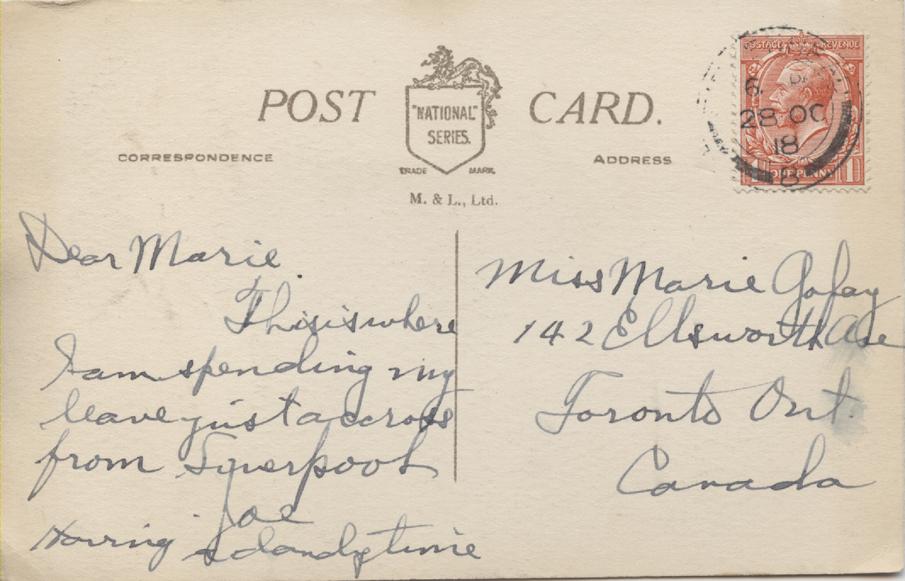 POST CARD.
"NATIONAL"
SERIES.
TRADE MARK.
M. & L., Ltd.
CORRESPONDENCE
ADDRESS
POSTAGE REVENUE
ONE PENNY
28 OC
18
Dear Marie
This is where
I am spending my
leave just accross
from Liverpool
Joe
Having a dandy time
Miss Marie
142 Ellsworth Ave
Toronto Ont.
Canada